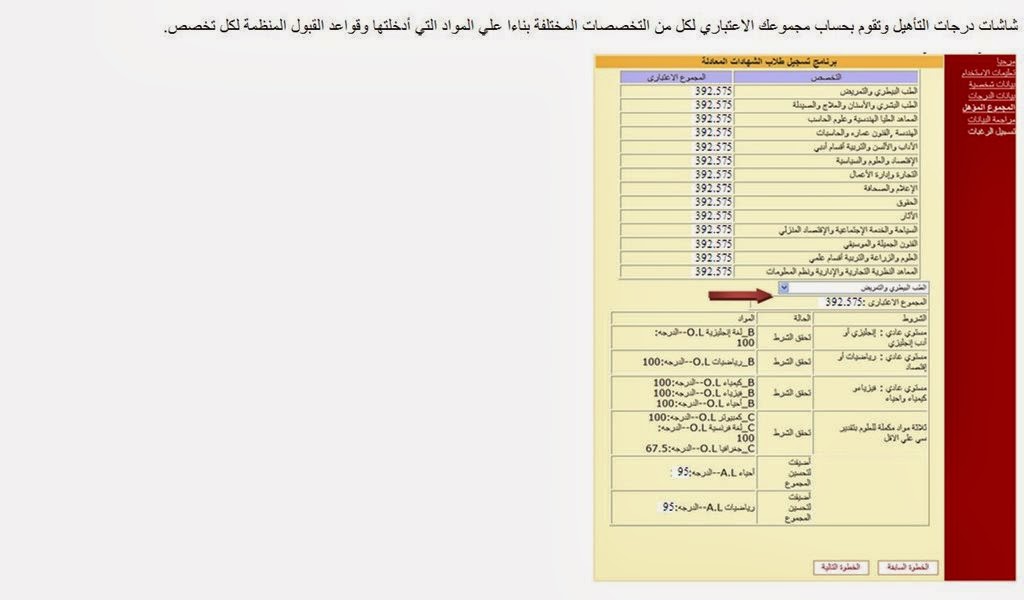 شاشات درجات التأهيل وتقوم بحساب مجموعك الاعتباري لكل من التخصصات المختلفة بناءا علي المواد التي أدخلتها وقواعد القبول المنظمة لكل تخصص.
برنامج تسجيل طلاب الشهادات المعادلة
مرحبا
تعليمات الاستخدام
بيانات شخصية
بيانات الدرجات
المجموع المؤهل
مراجعة البيانات
تسجيل الرغبات
التخصص المجموع الاعتبارى
الطب البيطري والتمريض 392.575
الطب البشري والأسنان والعلاج والصيدلة 392.575
المعاهد العليا الهندسية وعلوم الحاسب 392.575
الهندسة ,الفنون عماره والحاسبات 392.575
الآداب والألسن والتربية أقسام أدبي 392.575
الإقتصاد والعلوم والسياسية 392.575
التجارة وإدارة الأعمال 392.575
الإعلام والصحافة 392.575
الحقوق 392.575
الآثار 392.575
السياحة والخدمة الإجتماعية والإقتصاد المنزلي 392.575
الفنون الجميلة والموسيقي 392.575
العلوم والزراعة والتربية أقسام علمي 392.575
المعاهد النظرية التجارية والإدارية ونظم المعلومات 392.575
الطب البيطري والتمريض
المجموع الاعتبارى :392.575
الشروط الحالة المواد
مستوي عادي : إنجليزي أو
أدب إنجليزي
تحقق الشرط
B_لغة إنجليزية O.L--الدرجه:
100
مستوي عادي : رياضيات أو
إقتصاد
تحقق الشرط
B_رياضيات O.L--الدرجه:100
مستوي عادي : فيزياءو
كيمياء واحياء
تحقق الشرط
B_كيمياء O.L--الدرجه:100
B_فيزياء O.L--الدرجه:100
B_أحياء O.L--الدرجه:100
ثلاثة مواد مكملة للعلوم بتقدير
سي علي الاقل
تحقق الشرط
C_كمبيوتر O.L--الدرجه:100
C_لغة فرنسية O.L--الدرجه:
100
C_جغرافيا O.L--الدرجه:67.5
أضيفت
لتحسين
المجموع
أحياء A.L--الدرجه:95
أضيفت
لتحسين
المجموع
رياضيات A.L--الدرجه:95
الخطوة السابقة الخطوة التالية